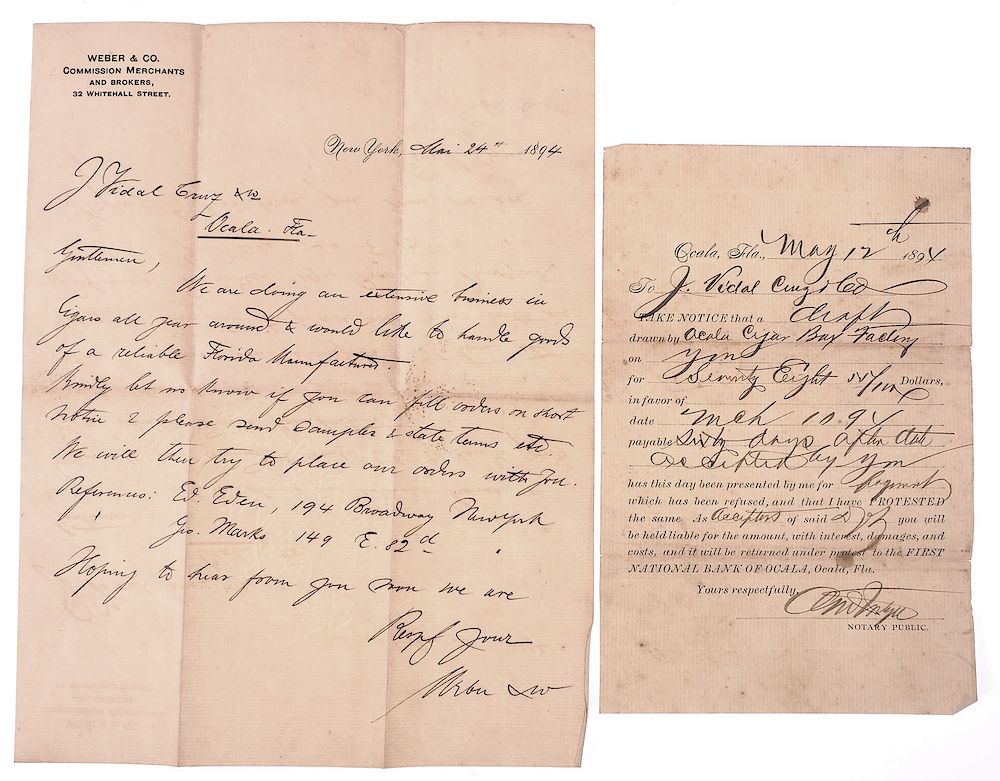 WEBER & CO.
COMMISSION MERCHANTS
AND BROKERS,
32 WHITEHALL STREET.
New York, Mai 24th 1894
J Vidal Cruz & Co
Ocala. Fla-
Gentlemen,
We are doing an extensive business in
Cygars all year around & would like to handle goods
of a reliable Florida Manufacturer.
Kindly let us know if you can fill orders on short
notice & please send samples & state terms etc.
We will then try to place our orders with you.
References: Ed. Eden, 194 Broadway New York
Geo. Marks 149 E. 82d
Hoping to hear from you soon we are
Respf Your
Weber & Co
Ocala, Fla., May 12th 1894
To J. Vidal Cruz & Co
TAKE NOTICE that a Draft
drawn by Ocala Cigar Box Factory
on You
for Seventy Eight /100 Dollars,
in favor of
date Mch 10. 94
payable Sixty days after date
accepted by you
has this day been presented by me for payment
which has been refused, and that I have PROTESTED
the same. As Acceptors of said Dft you will
be held liable for the amount, with interest, damages, and
costs, and it will be returned under protest to the FIRST
NATIONAL BANK OF OCALA, Ocala, Fla.
Yours respectfully,
NOTARY PUBLIC.